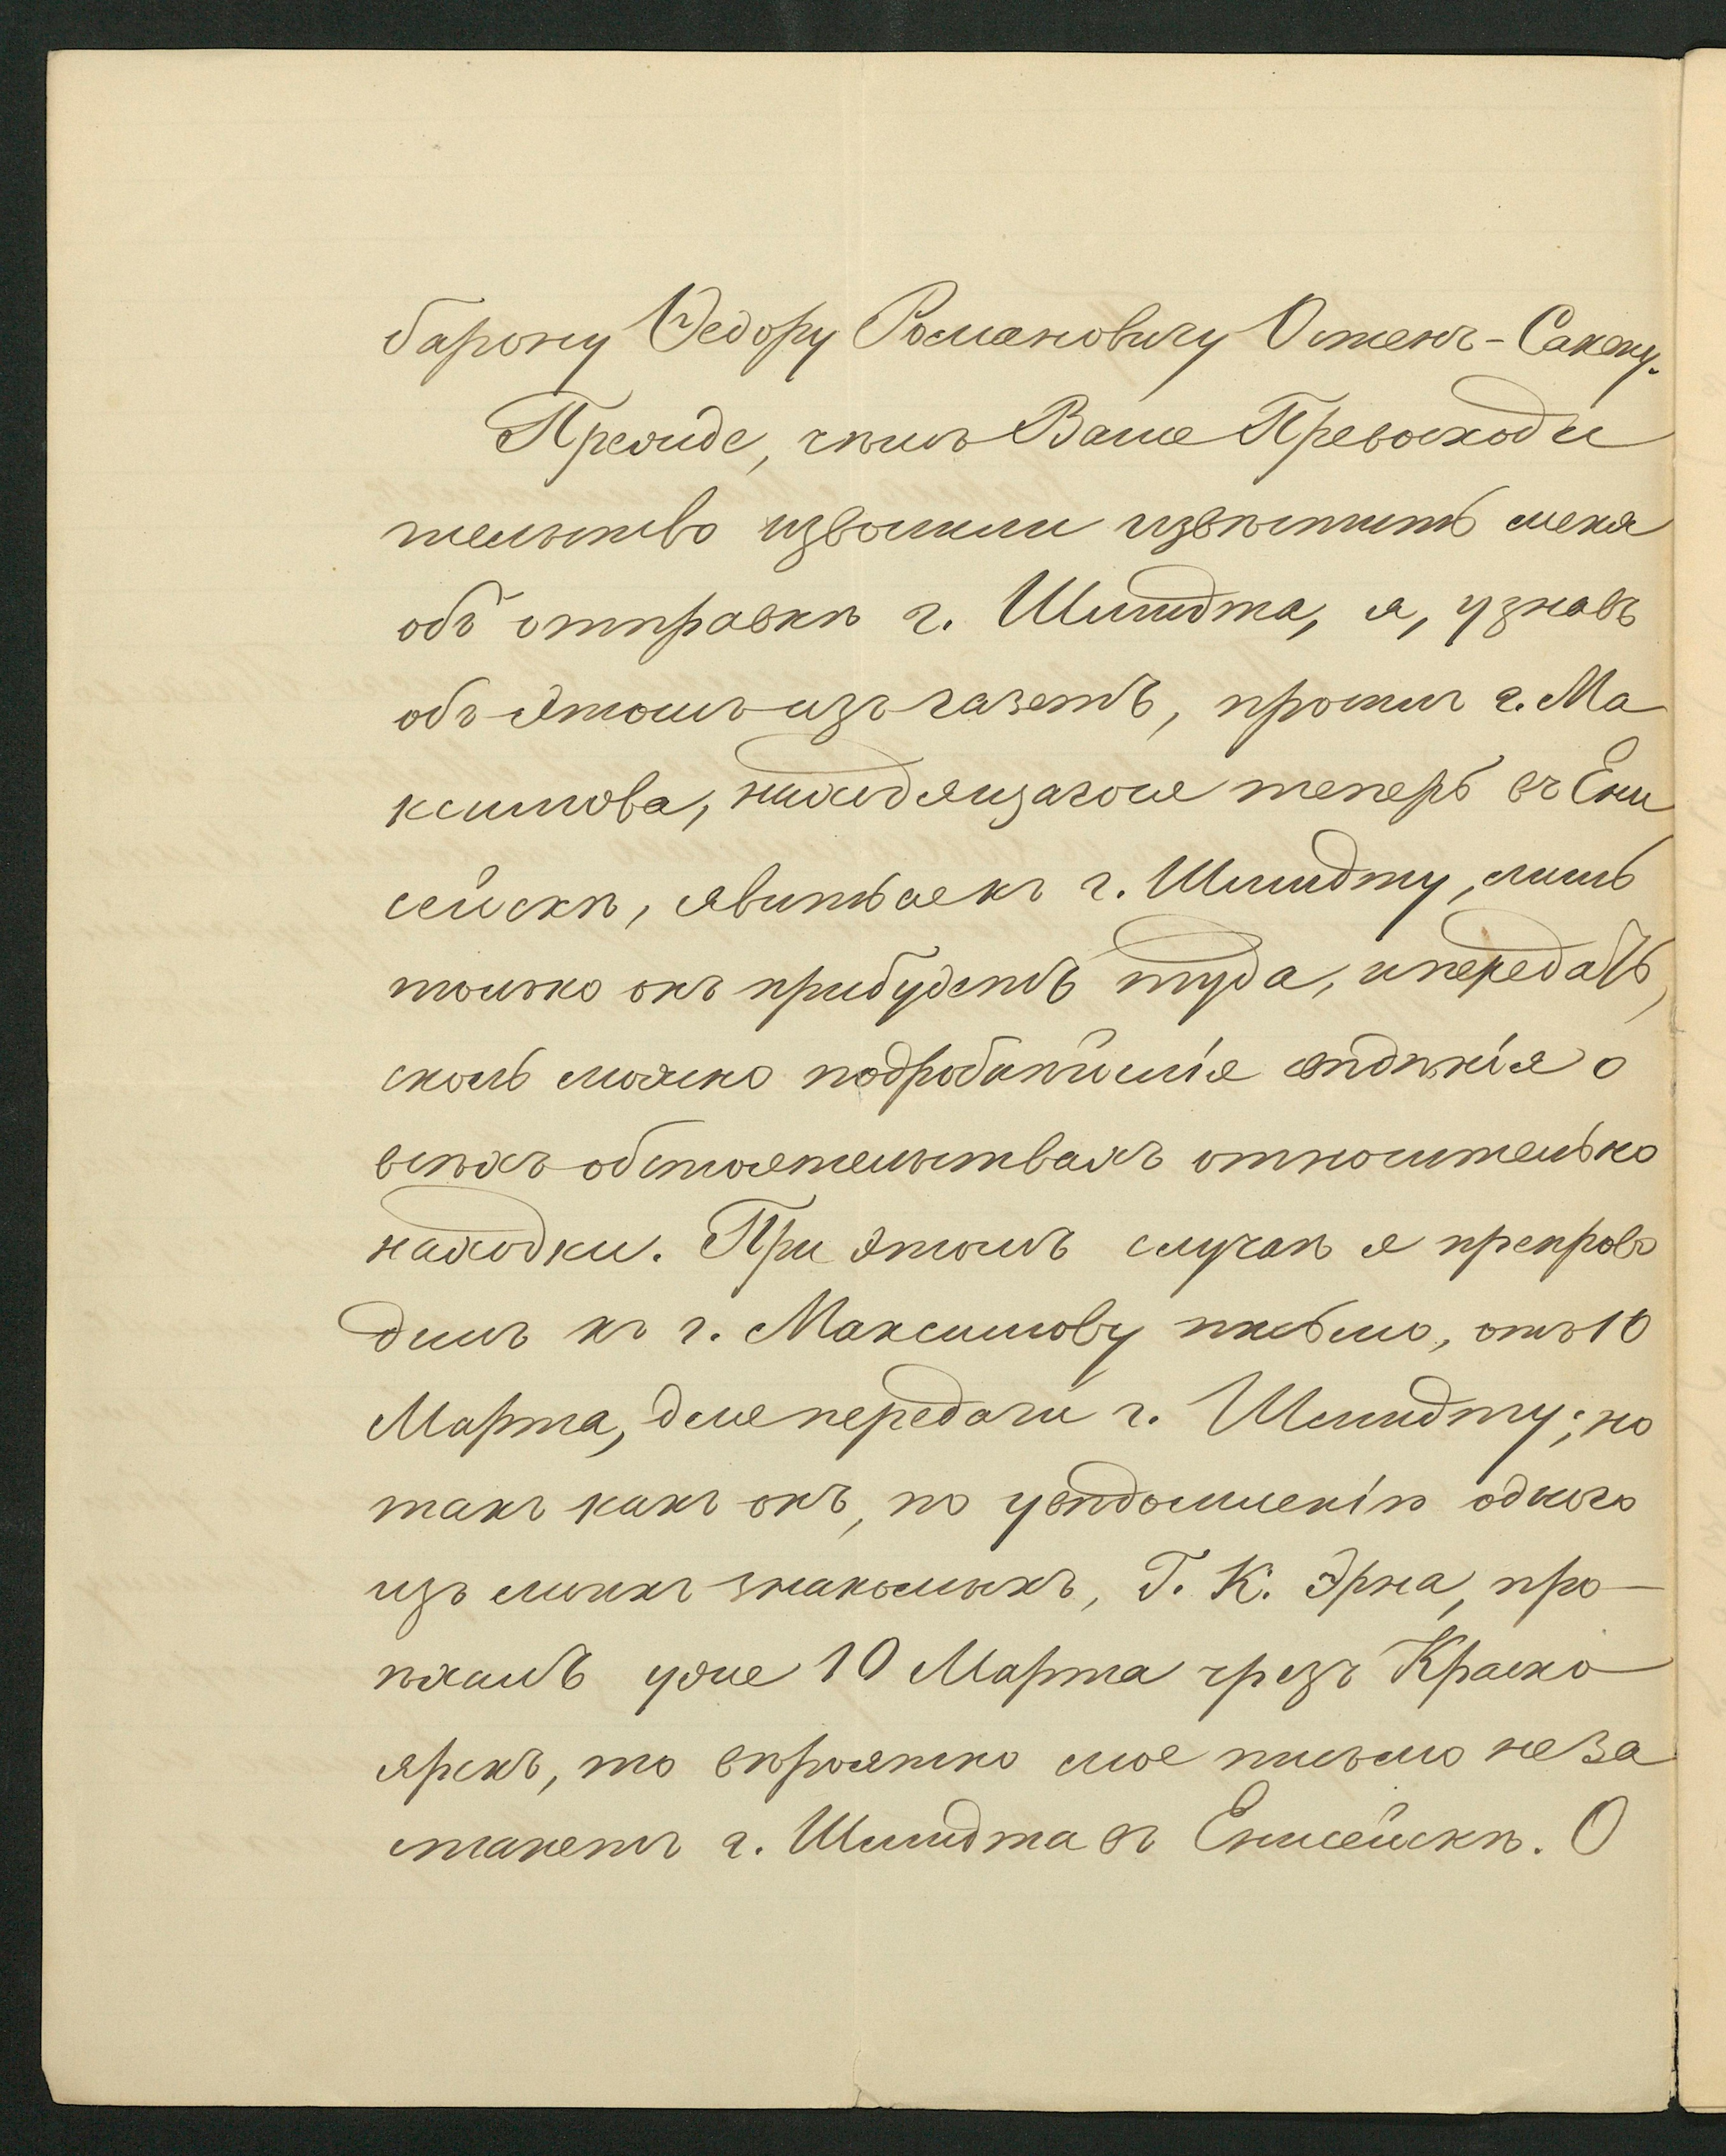 барону Ѳедору Романовичу Остенъ-Сакену.
Прежде, чѣмъ Ваше Превосходи
тельство изволили извѣстить меня
объ отправкѣ г. Шмидта, я, узнавъ
объ этомъ изъ газетъ, просилъ г. Ма
ксимова, находящагося теперь въ Ени
сейскѣ, явиться къ г. Шмидту, лишь
только онъ прибудетъ туда, и передать,
сколь можно подробнѣйшія свѣдѣнія о
всѣхъ обстоятельствахъ относительно
находки. При этомъ случаѣ я препрово
дилъ къ г. Максимову письмо, отъ 10
Марта, для передачи г. Шмидту; но
такъ какъ онъ, по увѣдомленію одного
изъ моихъ знакомыхъ, Г. К. Эрна, про-
ѣхалъ уже 10 Марта чрезъ Красно
ярскъ, то вѣроятно мое письмо не за
станетъ г. Шмидта въ Енисейскѣ. О